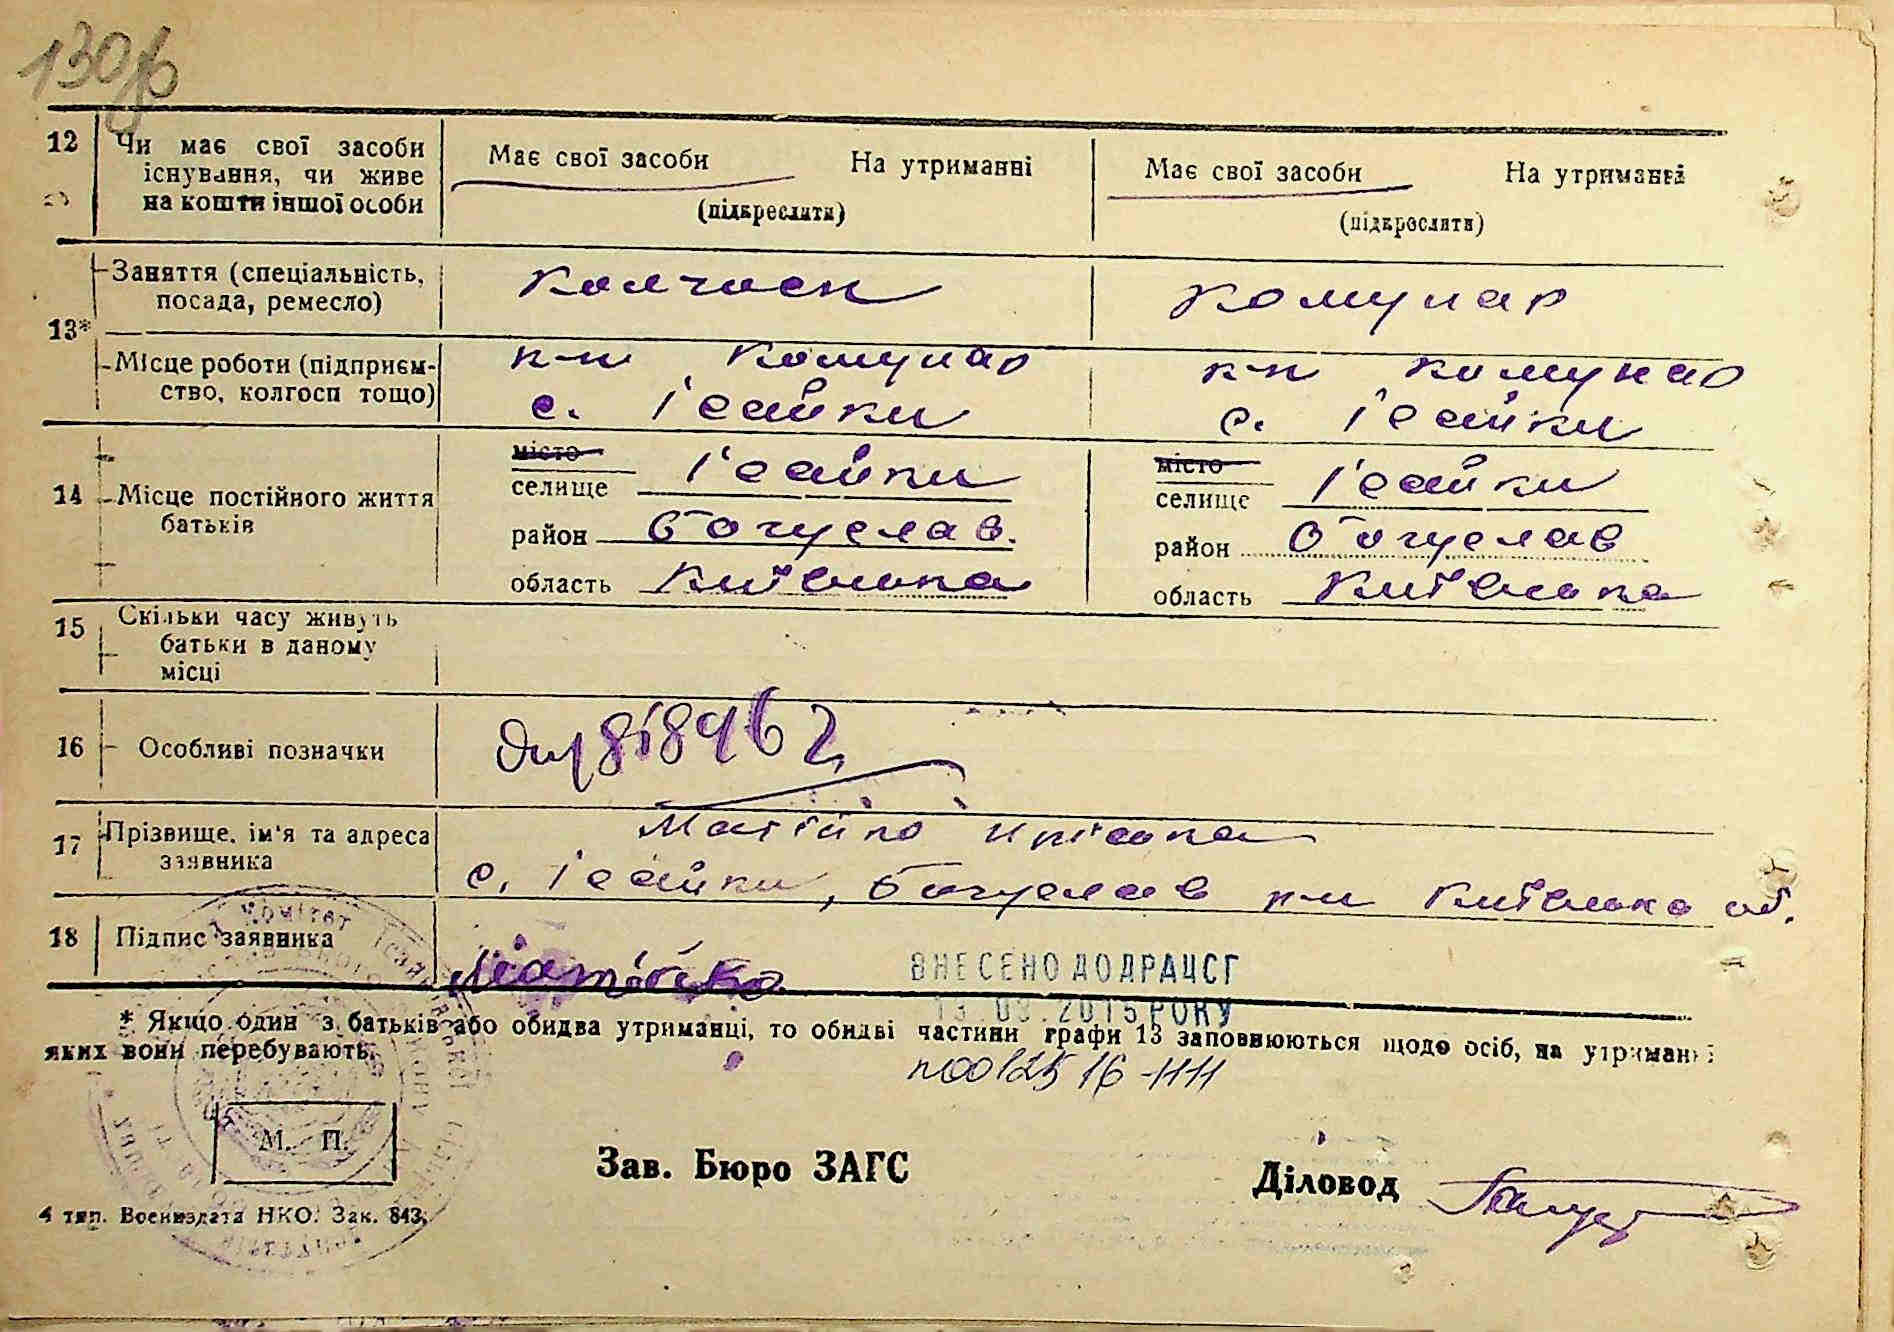 130
12 Чи має свої засоби існування, чи живе на кошти іншої особи
Має свої засоби На утриманні
(підкреслити)
Має свої засоби На утриманні
(підкреслити)
13*
Заняття (спеціальність, посада, ремесло)
Колгосп
Комунар
Місце роботи (підприємство, колгосп тощо)
к-п Комунар
с. Ісайки
к-п Комунар
с. Ісайки
14 Місце постійного життя батьків
місто
селище Ісайки
район Богуслав.
область Київська
місто
селище Ісайки
район Богуслав
область Київська
15 Скільки часу живуть батьки в даному місці
16 Особливі позначки
818962
17 Прізвище, ім'я та адреса заявника
Матійко
с. Ісайки, Богуслав р-н Київська об.
18 Підпис заявника
Матійко
ВНЕСЕНО ДО ДРАЦСГ
13.03.2015 РОКУ
* Якщо один з батьків або обидва утриманці, то обидві частини графи 13 заповнюються щодо осіб, на утриманні
яких вони перебувають.
00125 16
М. П.
Зав. Бюро ЗАГС
Діловод
4 тип. Воениздата НКО. Зак. 843.